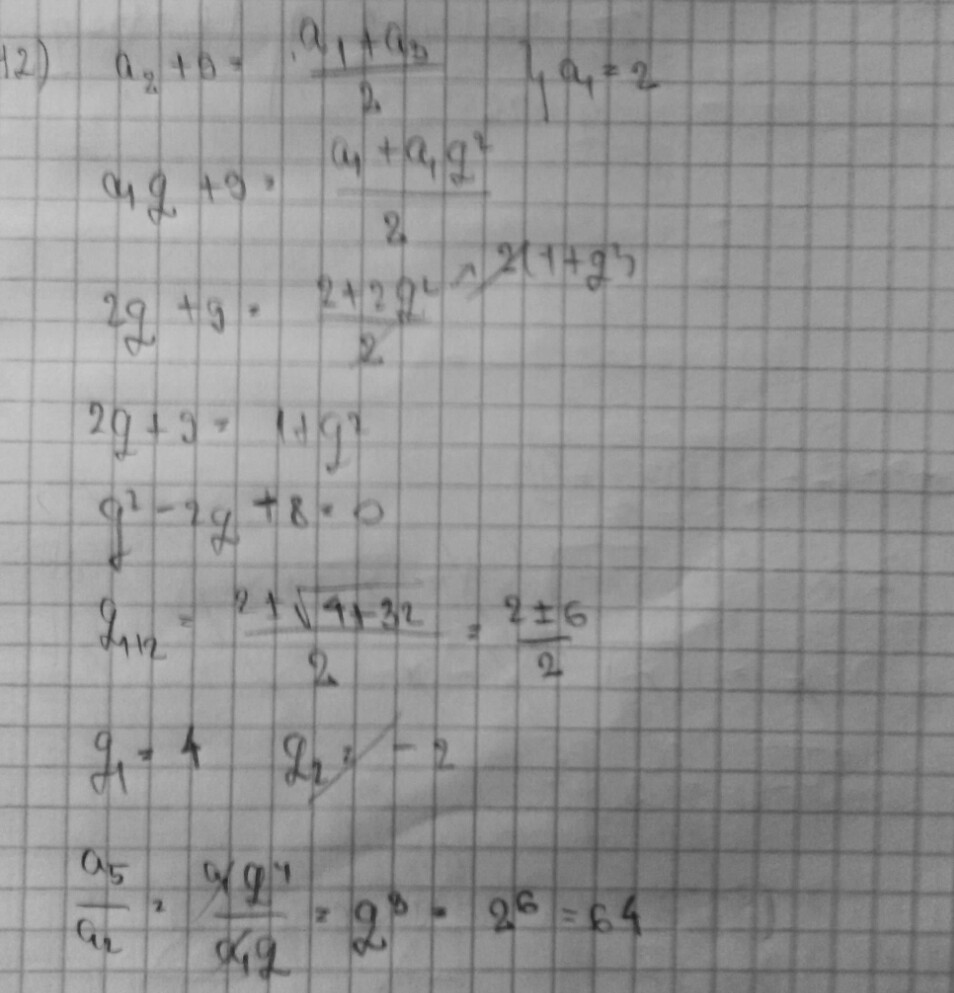 12) a₂ + 9 = (a₁ + a₃)/2 } a₁ = 2
a₁g + 9 = (a₁ + a₁g²)/2
2g + 9 = (2 + 2g²)/2 ↗ 2(1 + g²)
2g + 9 = 1 + g²
g² - 2g + 8 = 0
g₁,₂ = (2 + √(4 + 32))/2 = (2 ± 6)/2
g₁ = 4 g₂ = - 2
a₅/a₂ = a₁g⁴/a₁g = g³ = 2⁶ = 64